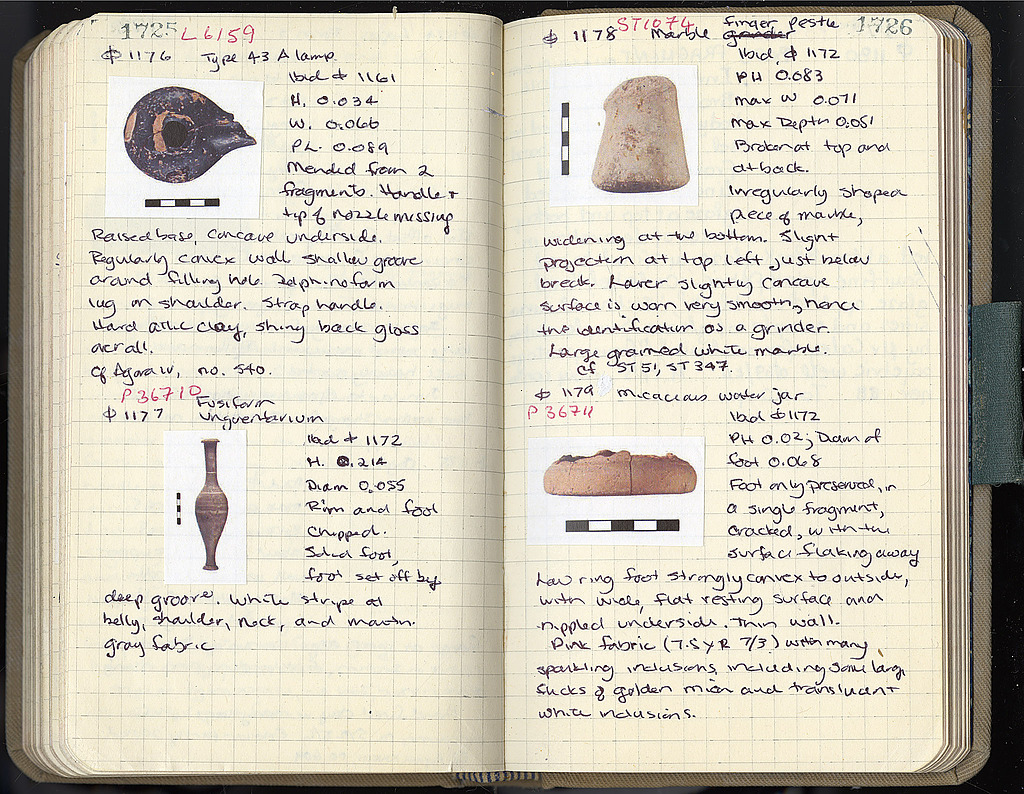 1725 L6159
ϕ 1176 Type 43 A lamp
Ibid ϕ 1161
H. 0.034
W. 0.066
PL. 0.089
Mended from 2
fragments. Handle +
tip of nozzle missing
Raised base, concave underside.
Regularly convex wall shallow groove
around filling hole. Delphiniform
lug on shoulder. Strap handle.
Hard attic clay, shiny back gloss
overall.
cf Agora IV, no. 540.
P 36710
ϕ 1177 Fusiform
Unguentarium
Ibid ϕ 1172
H. 0.214
Diam 0.055
Rim and foot
chipped.
Solid foot,
foot set off by
deep groove. White stripe at
belly, shoulder, neck, and mouth.
gray fabric
ST1074 finger pestle 1726
ϕ 1178 Marble grinder
Ibid, ϕ 1172
PH 0.083
max W 0.071
max Depth 0.051
Broken at top and
at back.
Irregularly shaped
piece of marble,
widening at the bottom. Slight
projection at top left just below
break. Lower slightly concave
surface is worn very smooth, hence
the identification as a grinder.
Large grained white marble.
cf ST 51, ST 347.
ϕ 1179 micaceous water jar
P 36711
Ibid ϕ 1172
PH 0.02; Diam of
foot 0.068
Foot only preserved, in
a single fragment,
cracked, with the
surface flaking away
Low ring foot strongly convex to outside,
with wide, flat resting surface and
nippled underside. Thin wall.
Pink fabric (7.5 YR 7/3) with many
sparkling inclusions, including some large
flecks of golden mica and translucent
white inclusions.